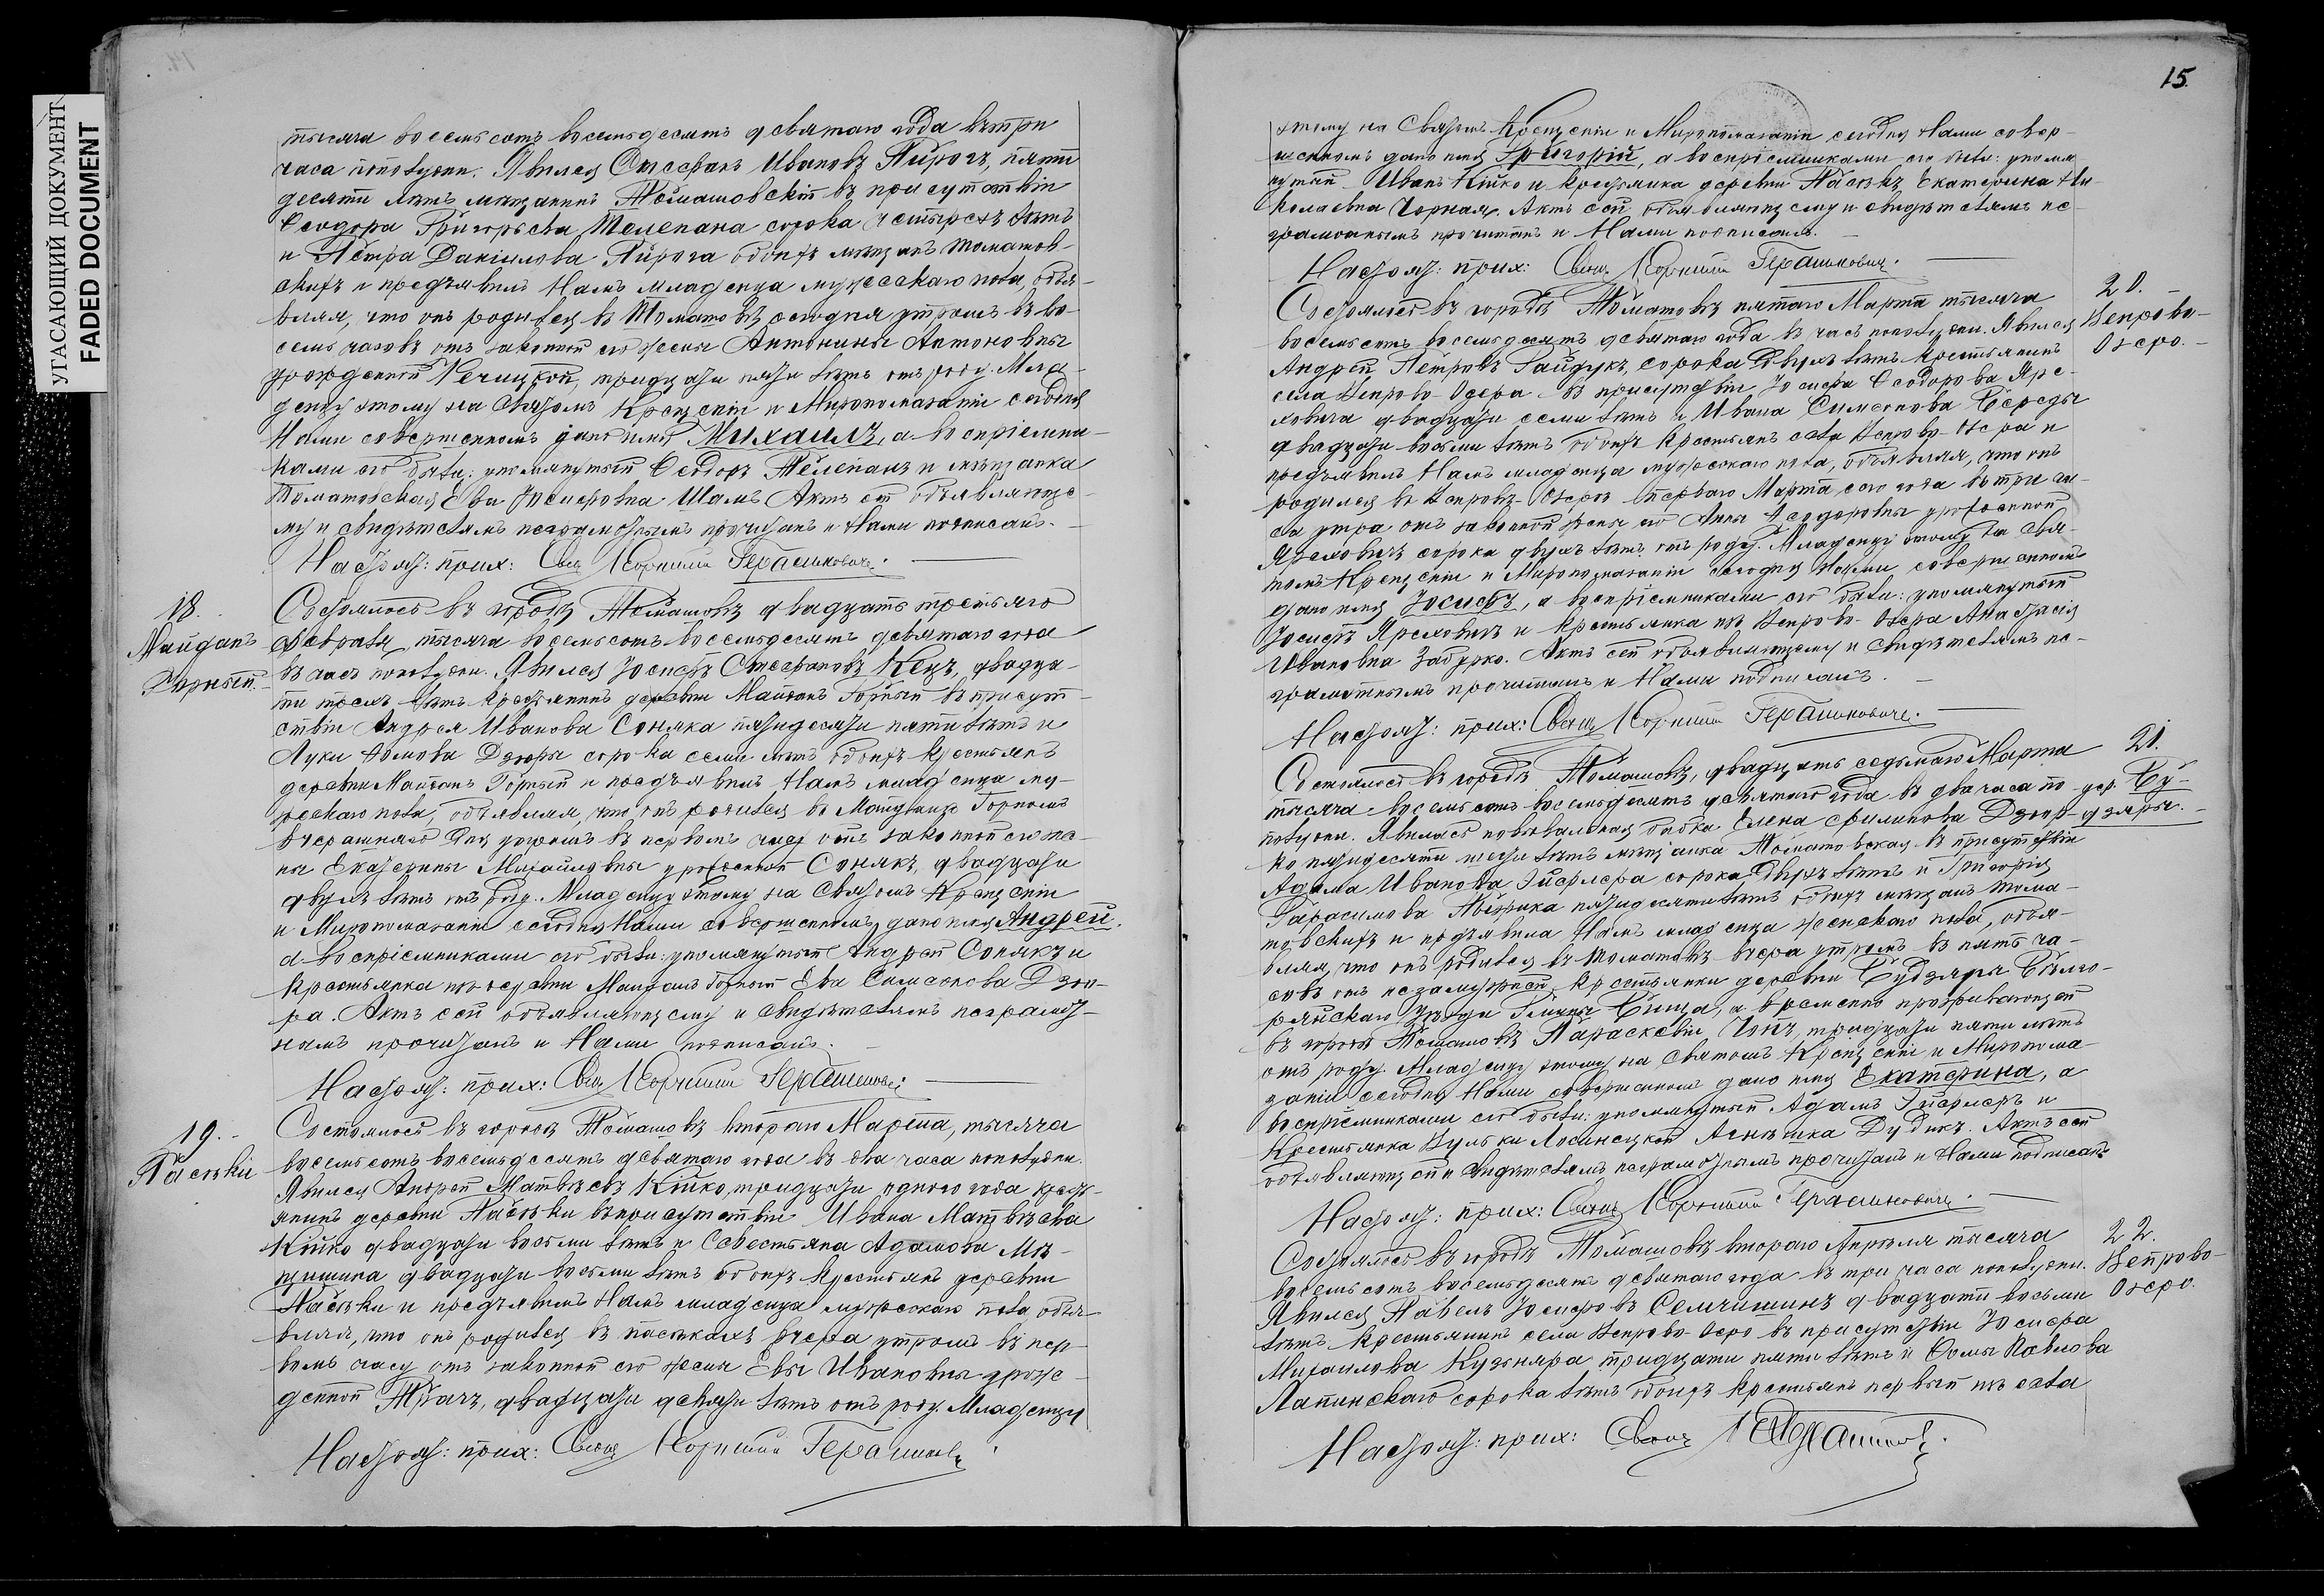 УГАСАЮЩИЙ ДОКУМЕНТ
FADED DOCUMENT
тысяча восемьсотъ восемьдесятъ девятаго года въ три
часа пополудни. Явился Стефанъ Ивановъ Пирогъ, пяти
десяти лѣтъ мѣщанинъ Томашовскій въ присутствіи
Ѳеодора Григорьева Телепана сорока четырехъ лѣтъ
и Петра Даніилова Пирога обоихъ мѣщанъ Томашов-
скихъ и предъявилъ Намъ младенца мужескаго пола, объя-
вляя, что онъ родился въ Томашовѣ сегодня утромъ въ во-
семь часовъ отъ законной его жены Антонины Антоновны
урожденной тридцати пяти лѣтъ отъ роду. Мла-
денцу этому на Святомъ Крещеніи и Миропомазаніи сегодня
Нами совершенномъ дано имя Михаилъ, а воспріемни-
ками его были: упомянутый Ѳеодоръ Телепанъ и мѣщанка
Томашовская Ева Іосифовна Шаль. Актъ сей объявляюще-
му и свидѣтелямъ неграмотнымъ прочитанъ и Нами подписанъ.
Настоят: прих: Свящ Корнилий Герашковичъ.
18.
Майданъ
Горный.
Состоялось въ городѣ Томашовѣ двадцать третьяго
Февраля, тысяча восемьсотъ восемьдесятъ девятаго года
въ часъ пополудни. Явился Іосифъ Стефановъ Кецъ, двадца-
ти трехъ лѣтъ крестьянинъ деревни Майданъ Горный въ присут-
ствіи Андрея Иванова Соняка пятидесяти пяти лѣтъ и
Луки Ѳомова Дзюры сорока семи лѣтъ обоихъ крестьянъ
деревни Майданъ Горный и предъявилъ Намъ младенца му-
жескаго пола, объявляя, что онъ родился въ Майданѣ Горномъ
вчерашняго дня утромъ въ первомъ часу отъ законной его же-
ны Екатерины Михайловны урожденной Сонякъ, двадцати
двухъ лѣтъ отъ роду. Младенцу этому на Святомъ Крещеніи
и Миропомазаніи сегодня Нами совершенномъ дано имя Андрей.
а воспріемниками его были: упомянутый Андрей Сонякъ и
крестьянка изъ деревни Майданъ Горный Ева Симеонова Дзю-
ра. Актъ сей объявляющему и свидѣтелямъ неграмот-
нымъ прочитанъ и Нами подписанъ.
Настоят: прих: Свящ Корнилий Герашковичъ.
19.
Пасѣки
Состоялось въ городѣ Томашовѣ втораго Марта, тысяча
восемьсотъ восемьдесятъ девятаго года въ два часа пополудни.
Явился Андрей Матвѣевъ Кійко, тридцати одного года кресть-
янинъ деревни Пасѣки въ присутствіи Ивана Матвѣева
Кійко двадцати восьми лѣтъ и Севестьяна Адамова Мѣ-
щишина двадцати восьми лѣтъ обоихъ крестьянъ деревни
Пасѣки и предъявилъ Намъ младенца мужескаго пола, объя-
вляя, что онъ родился въ Пасѣкахъ вчера утромъ въ пер-
вомъ часу отъ законной его жены Евы Ивановны урож-
денной Ткачъ, двадцати девяти лѣтъ отъ роду. Младенцу
Настоят: прих: Свящ Корнилий Герашковичъ
15.
этому на Святомъ Крещеніи и Миропомазаніи сегодня Нами совер-
шенномъ дано имя Григорій, а воспріемниками его были: упомя-
нутый Иванъ Кійко и крестьянка деревни Пасѣкъ Екатерина Ни-
колаевна Чорная. Актъ сей объявляющему и свидѣтелямъ не-
грамотнымъ прочитанъ и Нами подписанъ.
Настоят: прих: Свящ Корнилий Герашковичъ.
20.
Вепрово-
Озеро.
Состоялось въ городѣ Томашовѣ пятаго Марта тысяча
восемьсотъ восемьдесятъ девятаго года въ часъ пополудни. Явился
Андрей Петровъ Гайдукъ, сорока двухъ лѣтъ крестьянинъ
села Вепрово-Озера въ присутствіи Іосифа Ѳеодорова Яре-
ховича двадцати семи лѣтъ и Ивана Симеонова Береды
двадцати восьми лѣтъ обоихъ крестьянъ села Вепрово-Озера и
предъявилъ Намъ младенца мужескаго пола, объявляя, что онъ
родился въ Вепровѣ-Озерѣ перваго Марта сего года въ три ча-
са утра отъ законной жены его Анны Ѳеодоровны урожденной
Яреховичъ сорока двухъ лѣтъ отъ роду. Младенцу этому на Свя-
томъ Крещеніи и Миропомазаніи сегодня Нами совершенномъ
дано имя Іосифъ, а воспріемниками его были: упомянутый
Іосифъ Яреховичъ и крестьянка изъ Вепрово-Озера Анастасія
Ивановна Задурко. Актъ сей объявляющему и свидѣтелямъ не-
грамотнымъ прочитанъ и Нами подписанъ.
Настоят: прих: Свящ Корнилий Герашковичъ.
21.
дер. Бу-
дзяры.
Состоялось въ городѣ Томашовѣ, двадцать седьмаго Марта
тысяча восемьсотъ восемьдесятъ девятаго года въ два часа по-
полудни. Явилась повивальная бабка Елена Филипова Дзюр-
ко пятидесяти шести лѣтъ мѣщанка Томашовская въ присутствіи
Адама Иванова сорока двухъ лѣтъ и Григорія
Гарасимова пятидесяти лѣтъ обоихъ мѣщанъ Тома-
шовскихъ и предъявила Намъ младенца женскаго пола, объя-
вляя, что онъ родился въ Томашовѣ вчера утромъ въ пять ча-
совъ отъ незамужней крестьянки деревни Будзяры Бѣлго-
райскаго уѣзда Гмины Бища, а временно пребывающей
въ городѣ Томашовѣ Параскевіи тридцати пяти лѣтъ
отъ роду. Младенцу этому на Святомъ Крещеніи и Миропома-
заніи сегодня Нами совершенномъ дано имя Екатерина, а
воспріемниками его были: упомянутый Адамъ и
крестьянка Вульки Лосинецкой Агнешка Дудикъ. Актъ сей
объявляющей и свидѣтелямъ неграмотнымъ прочитанъ и Нами подписанъ.
Настоят: прих: Свящ Корнилий Герашковичъ.
22.
Вепрово-
Озеро.
Состоялось въ городѣ Томашовѣ втораго Апрѣля тысяча
восемьсотъ восемьдесятъ девятаго года въ три часа пополудни.
Явился Павелъ Іосифовъ Семчишинъ двадцати восьми
лѣтъ крестьянинъ села Вепрово-Озеро въ присутствіи Іосифа
Михаилова Кузьняра тридцати пяти лѣтъ и Ѳомы Павлова
Лапинскаго сорока лѣтъ обоихъ крестьянъ первый изъ села
Настоят: прих: Свящ